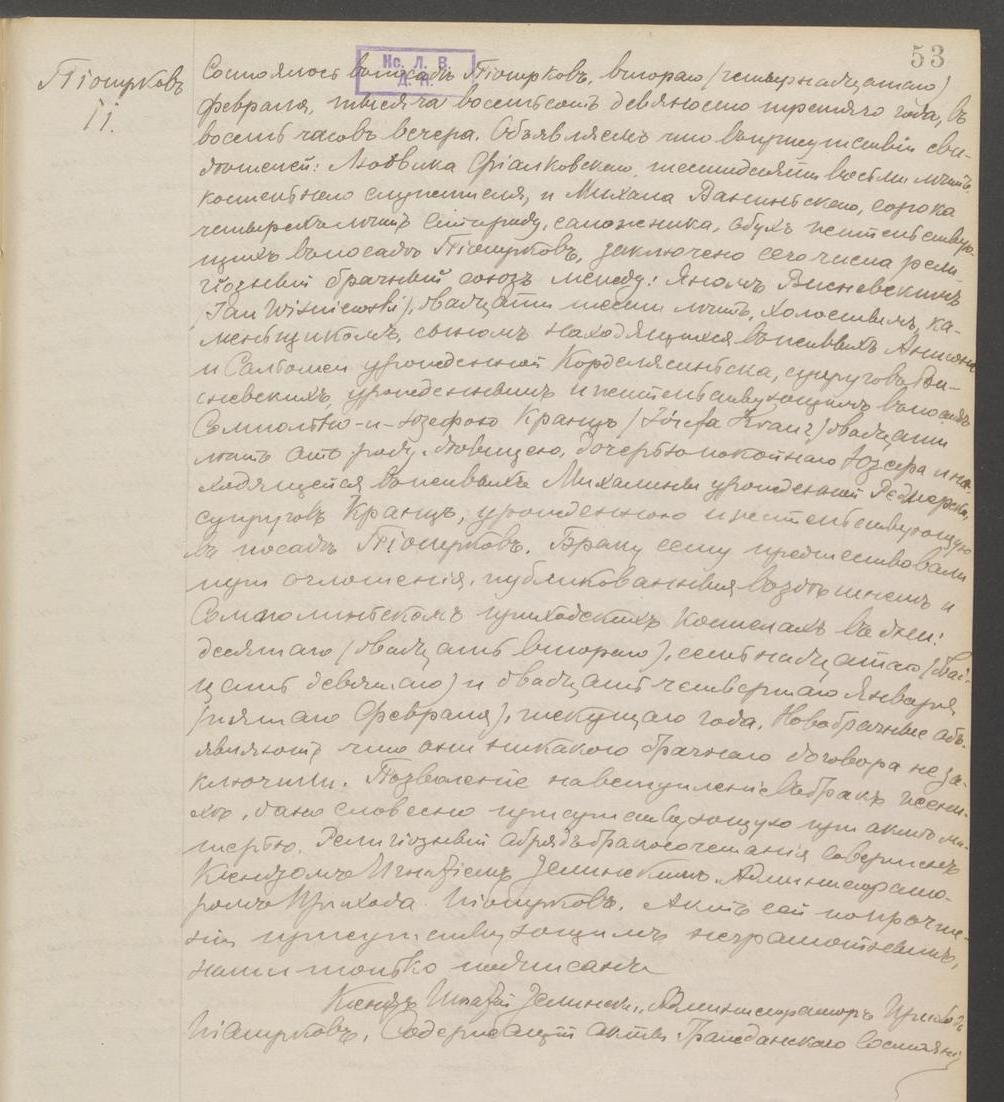 53
Піотрковъ
11.
Нс. Л. В.
Д. К.
Состоялось въ посадѣ Піотрковъ, втораго (четырнадцатаго)
февраля, тысяча восемьсотъ девяносто третьяго года, въ
восемь часовъ вечера. Объявляемъ что въ присутствіи сви-
дѣтелей: Людвика Фіалковскаго, шестидесяти восьми лѣтъ,
костельнаго служителя, и Михала Ванинскаго, сорока
четырехъ лѣтъ отъ роду, сапожника, обухъ жительствую-
щихъ въ посадѣ Піотрковъ, заключено сего числа рели
гіозный брачный союзъ между: Яномъ Висневскимъ
(Jan Wiśniewski), двадцати шести лѣтъ, холостымъ, ка-
менщикомъ, сыномъ находящихся въ живыхъ Антона
и Саломеи урожденной супруговъ Ви-
сневскихъ, урожденнымъ и жительствующимъ въ посадѣ
Семпольно -и- Юзефою Кранцъ (Józefa Kranz) двадцати
лѣтъ отъ роду, дѣвицею, дочерью покойнаго Юзефа и на-
ходящейся въ живыхъ Михалины урожденной
супруговъ Кранцъ, урожденною и жительствующую
въ посадѣ Піотрковъ. Браку сему предшествовали
три оглошенія, публикованныя въ здѣшнемъ и
Семполинскомъ приходскихъ костелахъ въ дни:
десятаго (двадцать втораго), семнадцатаго (двад-
цать девятаго) и двадцать четвертаго Января
(пятаго Февраля), текущаго года. Новобрачные объ-
являютъ что они никакого брачнаго договора не за-
ключили. Позволеніе на вступленіе въ бракъ невѣ-
стѣ, дано словесно присутствующую при актѣ ма-
терью. Религіозный обрядъ бракосочетанія совершенъ
Ксендзомъ Игнатіемъ Зелинскимъ Администрато-
ромъ Прихода Піотрковъ. Актъ сей по прочте-
ніи присутствующимъ неграмотнымъ,
нами только подписанъ
Ксендзъ Игнатій Зелински, Администраторъ Прихода
Піотрковъ, Содержащій акты Гражданскаго Состоянія